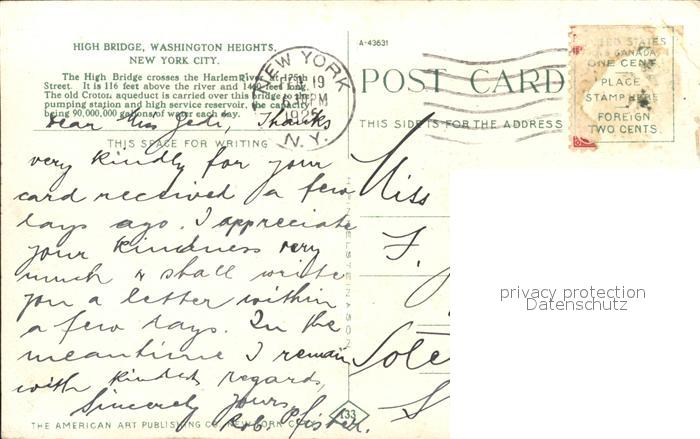 HIGH BRIDGE, WASHINGTON HEIGHTS,
NEW YORK CITY.
The High Bridge crosses the Harlem River at 175th
Street. It is 116 feet above the river and 1460 feet long.
The old Croton aqueduct is carried over this bridge to the
pumping station and high service reservoir, the capacity
being 90,000,000 gallons of water each day.
Dear Miss Jedi, Thanks
THIS SPACE FOR WRITING
very kindly for your
card received a few
days ago. I appreciate
your kindness very
much & shall write
you a letter within
a few days. In the
meantime I remain
with kindest regards,
Sincerely yours,
Rob. Pfister.
THE AMERICAN ART PUBLISHING CO. NEW YORK C
A-43631
NEW YORK
19
PM
N.Y.
POST CARD
THIS SIDE IS FOR THE ADDRESS
UNITED STATES
& CANADA
ONE CENT
PLACE
STAMP HERE
FOREIGN
TWO CENTS.
Miss
F.
Sole
S
133
privacy protection
Datenschutz